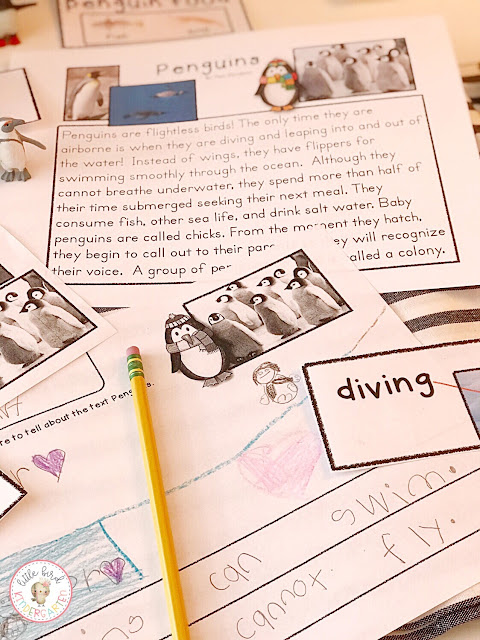 Penguin Food
Fish
Penguins
Penguins are flightless birds! The only time they are
airborne is when they are diving and leaping into and out of
the water! Instead of wings, they have flippers for
swimming smoothly through the ocean. Although they
cannot breathe underwater, they spend more than half of
their time submerged seeking their next meal. They
consume fish, other sea life, and drink salt water. Baby
penguins are called chicks. From the moment they hatch,
they begin to call out to their par
ey will recognize
their voice. A group of pe
alled a colony.
diving
re to tell about the text Penguins.
can swim.
cannot fly.
little bird
KINDERGARTEN